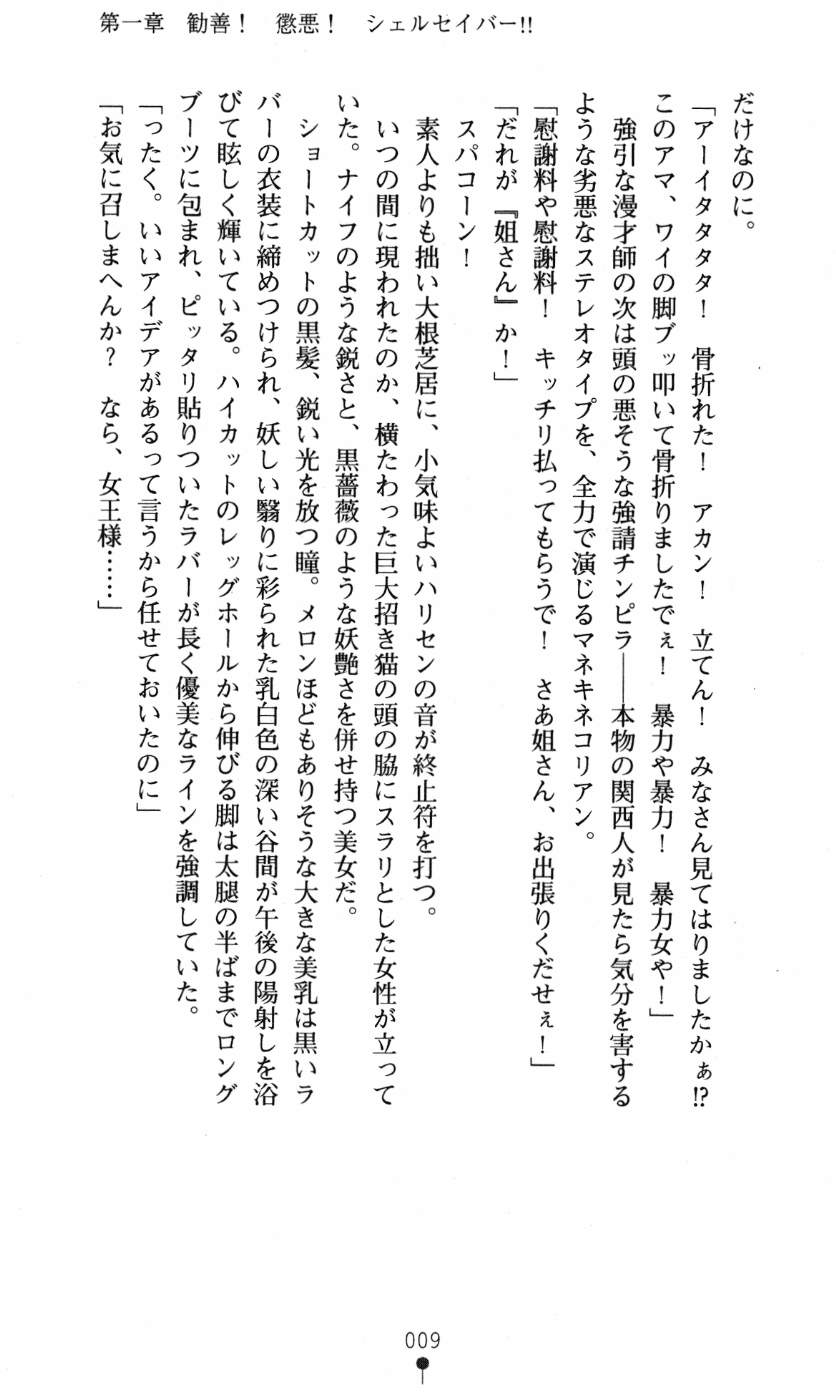 第一章　勧善！　懲悪！　シェルセイバー!!
だけなのに。
「アーイタタタタ！　骨折れた！　アカン！　立てん！　みなさん見てはりましたかぁ!?
このアマ、ワイの脚ブッ叩いて骨折りましたでぇ！　暴力や暴力！　暴力女や！」
　強引な漫才師の次は頭の悪そうな強請チンピラ――本物の関西人が見たら気分を害する
ような劣悪なステレオタイプを、全力で演じるマネキネコリアン。
「慰謝料や慰謝料！　キッチリ払ってもらうで！　さあ姐さん、お出張りくだせぇ！」
「だれが『姐さん』か！」
　スパコーン！
　素人よりも拙い大根芝居に、小気味よいハリセンの音が終止符を打つ。
　いつの間に現われたのか、横たわった巨大招き猫の頭の脇にスラリとした女性が立って
いた。ナイフのような鋭さと、黒薔薇のような妖艶さを併せ持つ美女だ。
　ショートカットの黒髪、鋭い光を放つ瞳。メロンほどもありそうな大きな美乳は黒いラ
バーの衣装に締めつけられ、妖しい翳りに彩られた乳白色の深い谷間が午後の陽射しを浴
びて眩しく輝いている。ハイカットのレッグホールから伸びる脚は太腿の半ばまでロング
ブーツに包まれ、ピッタリ貼りついたラバーが長く優美なラインを強調していた。
「ったく。いいアイデアがあるって言うから任せておいたのに」
「お気に召しまへんか？　なら、女王様……」
009